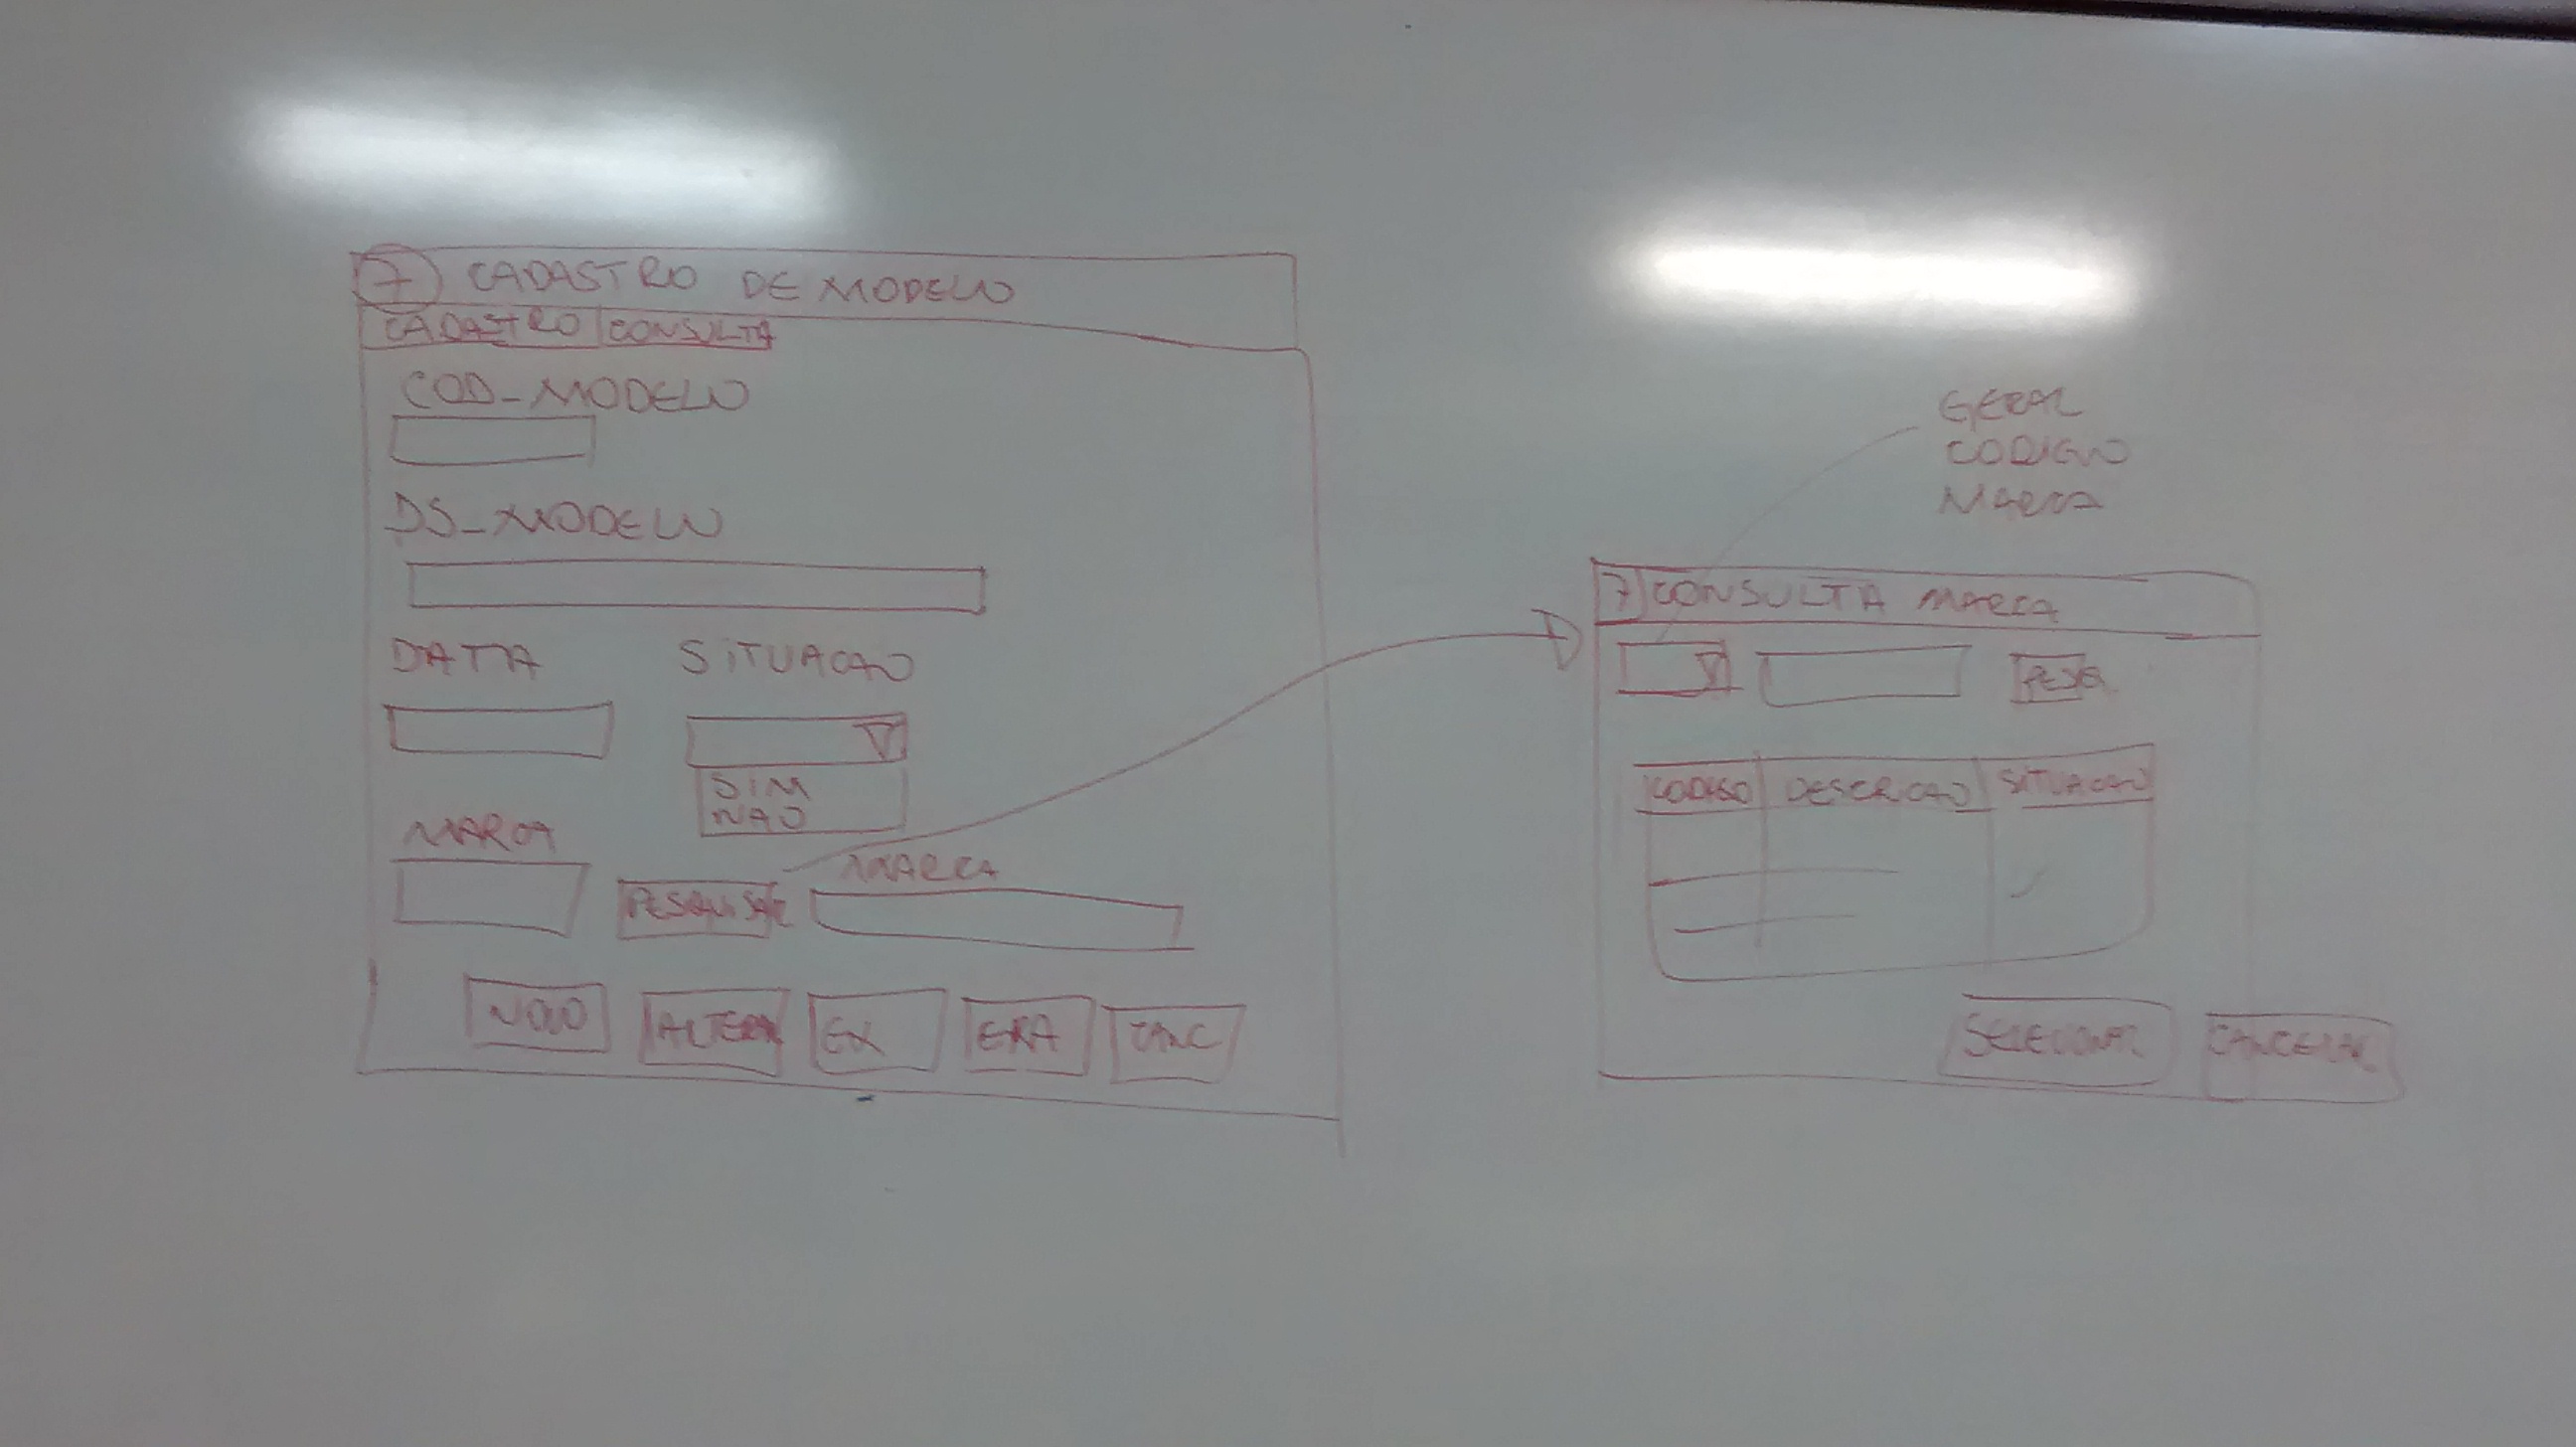 7 CADASTRO DE MODELO
CADASTRO CONSULTA
COD_MODELO
DS_MODELO
DATA SITUACAO
SIM
NAO
MARCA
PESQUISAR MARCA
NOVO ALTERA EX CANC
GERAL
CODIGO
MARCA
7 CONSULTA MARCA
PESQ
CODIGO DESCRICAO SITUACAO
SELECIONAR CANCELAR